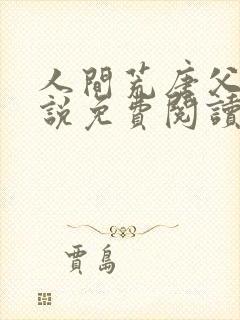 人間荒唐父
說免費閱讀
賈島